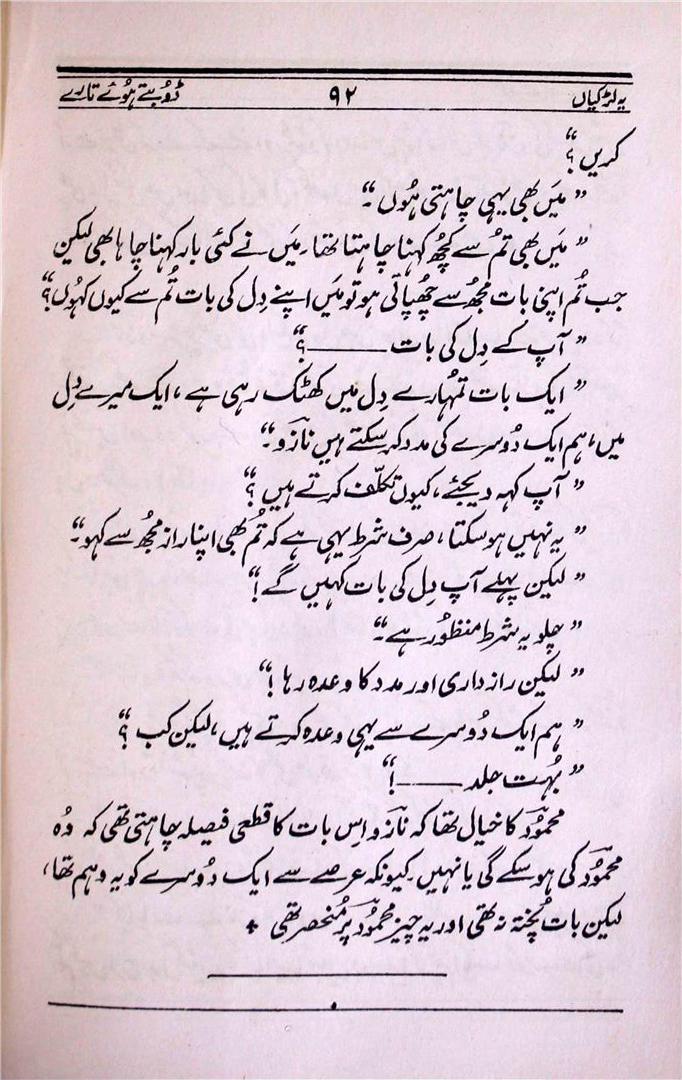 یہ لڑکیاں ۹۲ ڈوبتے ہوئے تارے
کریں؟“
”میَں بھی یہی چاہتی ہُوں۔“
”میَں بھی تمُ سے کچُھ کہنا چاہتا تھا۔ میَں نے کئی بار کہنا چاہا بھی لیکن
جب تُم اپنی بات مجُھ سے چُھپاتی ہو تو میَں اپنے دِل کی بات تُم سے کیوں کہُوں؟“
”آپ کے دِل کی بات ———؟“
”ایک بات تمُہارے دِل میں کھٹک رہی ہے، ایک میرے دِل
میں، ہم ایک دُوسرے کی مدد کر سکتے ہیں نازو۔“
”آپ کہہ دیجئے، کیوں تکلّف کرتے ہیں؟“
”یہ نہیں ہو سکتا، صرف شرط یہی ہے کہ تُم بھی اپنا راز مجُھ سے کہو۔“
”لیکن پہلے آپ دِل کی بات کہیں گے!“
”چلو یہ شرط منظُور ہے۔“
”لیکن رازداری اور مدد کا وعدہ رہا!“
”ہم ایک دُوسرے سے یہی وعدہ کرتے ہیں، لیکن کب؟“
”بُہت جلد ———!“
محمُود کا خیال تھا کہ نازو اِس بات کا قطعی فیصلہ چاہتی تھی کہ وُہ
محمُود کی ہو سکے گی یا نہیں۔ کیونکہ عرصے سے ایک دُوسرے کو یہ وہم تھا،
لیکن بات پُختہ نہ تھی اور یہ چیز محمُود پر مُنحصر تھی ✦